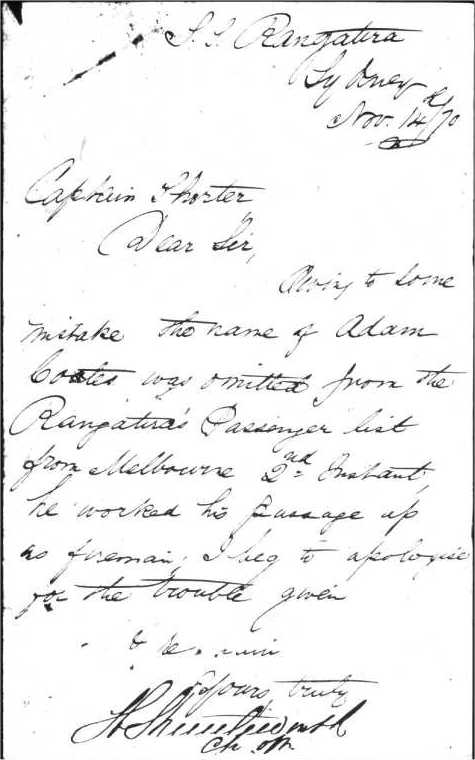 S.S. Rangatira
Sydney
Nov. 14th/70
Captain Shorter
Dear Sir,
Owing to some
mistake the name of Adam
Coates was omitted from the
Rangatira's Passenger list
from Melbourne 2nd Instant,
he worked his passage up
as fireman; I beg to apologise
for the trouble given
&
Yours truly